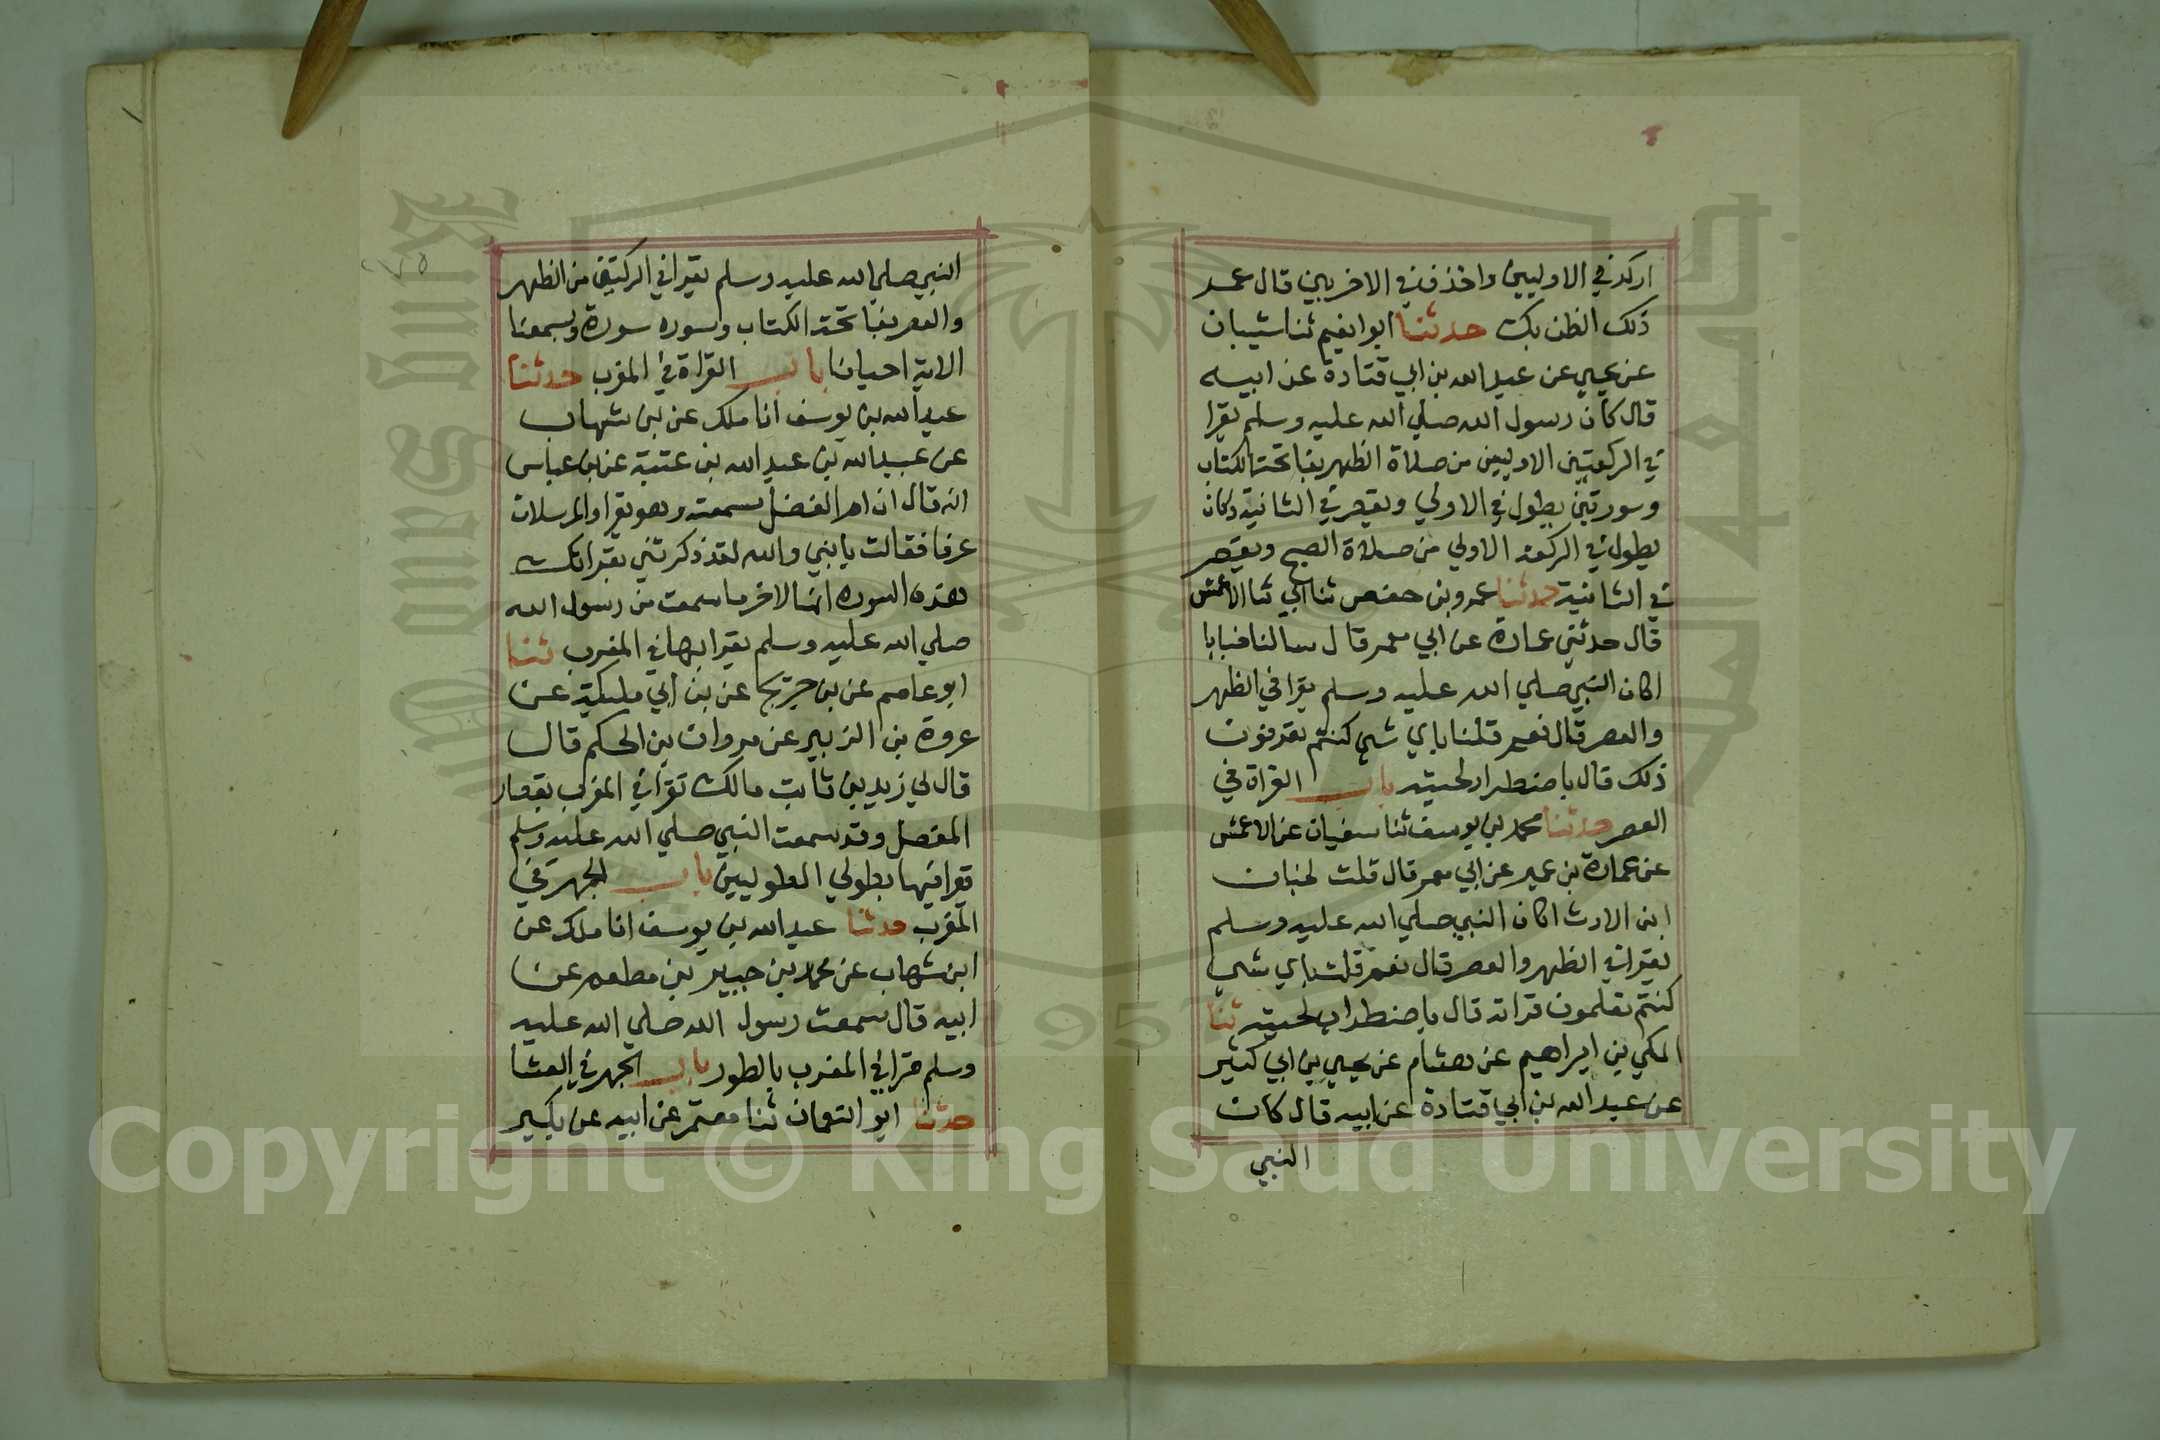 اركد في الاوليين واخذف في الاخريين قال عمر
ذلك الظن بك حدثنا ابو انعيم ثنا شيبان
عن يحيي عن عبد الله بن ابي قتادة عن ابيه
قال كان رسول الله صلي الله عليه وسلم يقرا
في الركعتين الاوليين من صلاة الظهر بفاتحة الكتاب
وسورتين يطول في الاولي ويقصر في الثانية وكان
يطول في الركعة الاولي من صلاة الصبح ويقصر
في الثانية حدثنا عمرو بن حفص ثنا ابي ثنا الاعمش
قال حدثني عمارة عن ابي معمر قال سالنا خبابا
اكان النبي صلي الله عليه وسلم يقرا في الظهر
والعصر قال نعم قلنا باي شي كنتم تعرفون
ذلك قال باضطرار لحيته باب القراة في
العصر حدثنا محمد بن يوسف ثنا سفيان عن الاعمش
عن عمارة بن عمير عن ابي معمر قال قلت لخباب
ابن الارث اكان النبي صلي الله عليه وسلم
يقرا في الظهر والعصر قال نعم قلت باي شي
كنتم تعلمون قراته قال باضطراب لحيته ثنا
المكي بن ابراهيم عن هشام عن يحيي بن ابي كثير
عن عبد الله بن ابي قتادة عن ابيه قال كان
النبي
النبي صلي الله عليه وسلم يقرا في الركعتين من الظهر
والعصر بفاتحة الكتاب وسوره سورة ويسمعنا
الاية احيانا باب القراة في المغرب حدثنا
عبد الله بن يوسف انا ملك عن بن شهاب
عن عبيد الله بن عبد الله بن عتبة عن بن عباس
انه قال ان ام الفضل سمعته وهو يقرا والمرسلات
عرفا فقالت يا بني والله لقد ذكرتني بقراتك
هذه السوره انها لاخر ما سمعت من رسول الله
صلي الله عليه وسلم يقرا بها في المغرب ثنا
ابو عاصم عن بن جريج عن بن ابي مليكة عن
عروة بن الزبير عن مروان بن الحكم قال
قال لي زيد بن ثابت مالك تقرا في المغرب بقصار
المفصل وقد سمعت النبي صلي الله عليه وسلم
يقرا فيها بطولي الطوليين باب الجهر في
المغرب حدثنا عبد الله بن يوسف انا ملك عن
ابن شهاب عن محمد بن جبير بن مطعم عن
ابيه قال سمعت رسول الله صلي الله عليه
وسلم قرا في المغرب بالطور باب الجهر في العشا
حدثنا ابو النعمان ثنا معتمر عن ابيه عن بكير
King Saud University
1957
Copyright © King Saud University